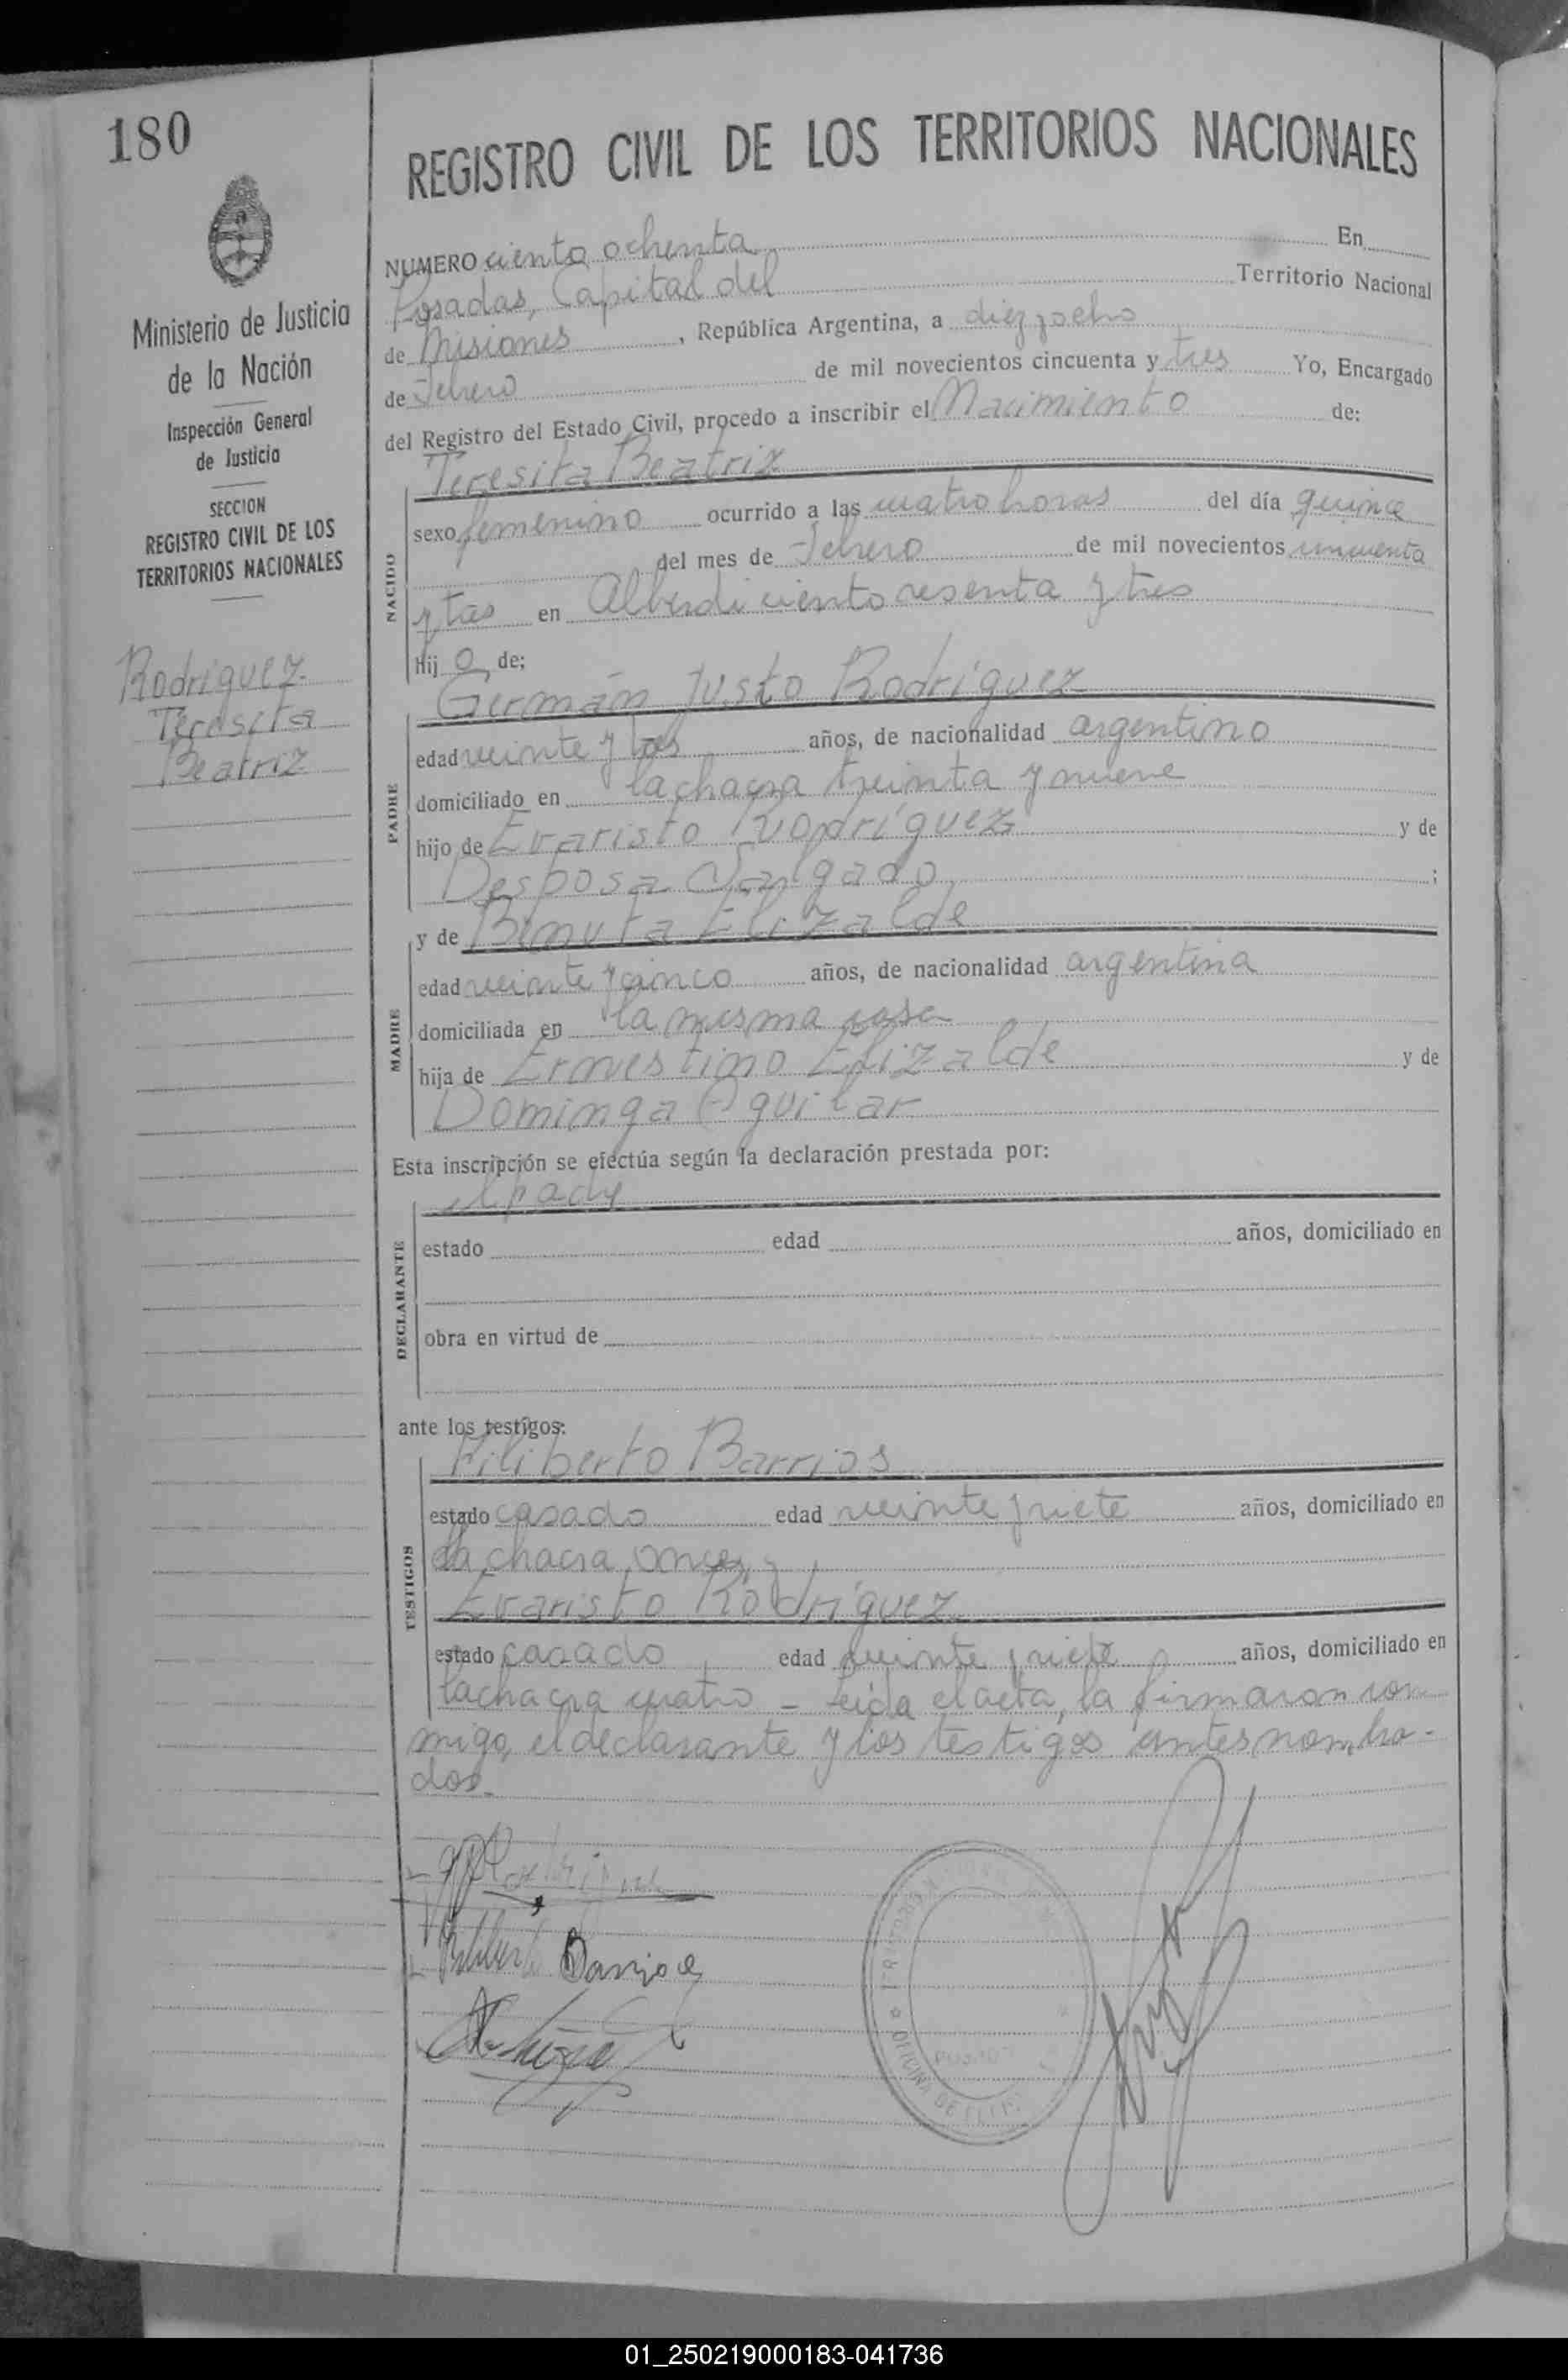 180
REGISTRO CIVIL DE LOS TERRITORIOS NACIONALES
Ministerio de Justicia
de la Nación
Inspección General
de Justicia
SECCION
REGISTRO CIVIL DE LOS
TERRITORIOS NACIONALES
Rodriguez
Teresita
Beatriz
NUMERO ciento ochenta En
Posadas, Capital del Territorio Nacional
de Misiones, República Argentina, a diez y ocho
de Febrero de mil novecientos cincuenta y tres Yo, Encargado
del Registro del Estado Civil, procedo a inscribir el Nacimiento de:
NACIDO
Teresita Beatriz
sexo femenino ocurrido a las cuatro horas del día quince
del mes de Febrero de mil novecientos cincuenta
y tres en Alberdi ciento sesenta y tres
Hij a de;
PADRE
Germán Justo Rodríguez
edad veinte y tres años, de nacionalidad argentino
domiciliado en la chacra treinta y nueve
hijo de Evaristo Rodríguez y de
Desposa Salgado;
MADRE
y de Benuta Elizalde
edad veinte y cinco años, de nacionalidad argentina
domiciliada en la misma casa
hija de Ernestino Elizalde y de
Dominga Aguilar
Esta inscripción se efectúa según la declaración prestada por:
DECLARANTE
el padre
estado edad años, domiciliado en
obra en virtud de
ante los testigos:
TESTIGOS
Filiberto Barrios
estado casado edad veinte y siete años, domiciliado en
la chacra once, y
Evaristo Rodríguez
estado casado edad veinte y siete años, domiciliado en
la chacra cuatro - Leída el acta, la firmaron con
migo, el declarante y los testigos antes nombra-
dos.
Barrios
OFICINA DE
01_250219000183-041736